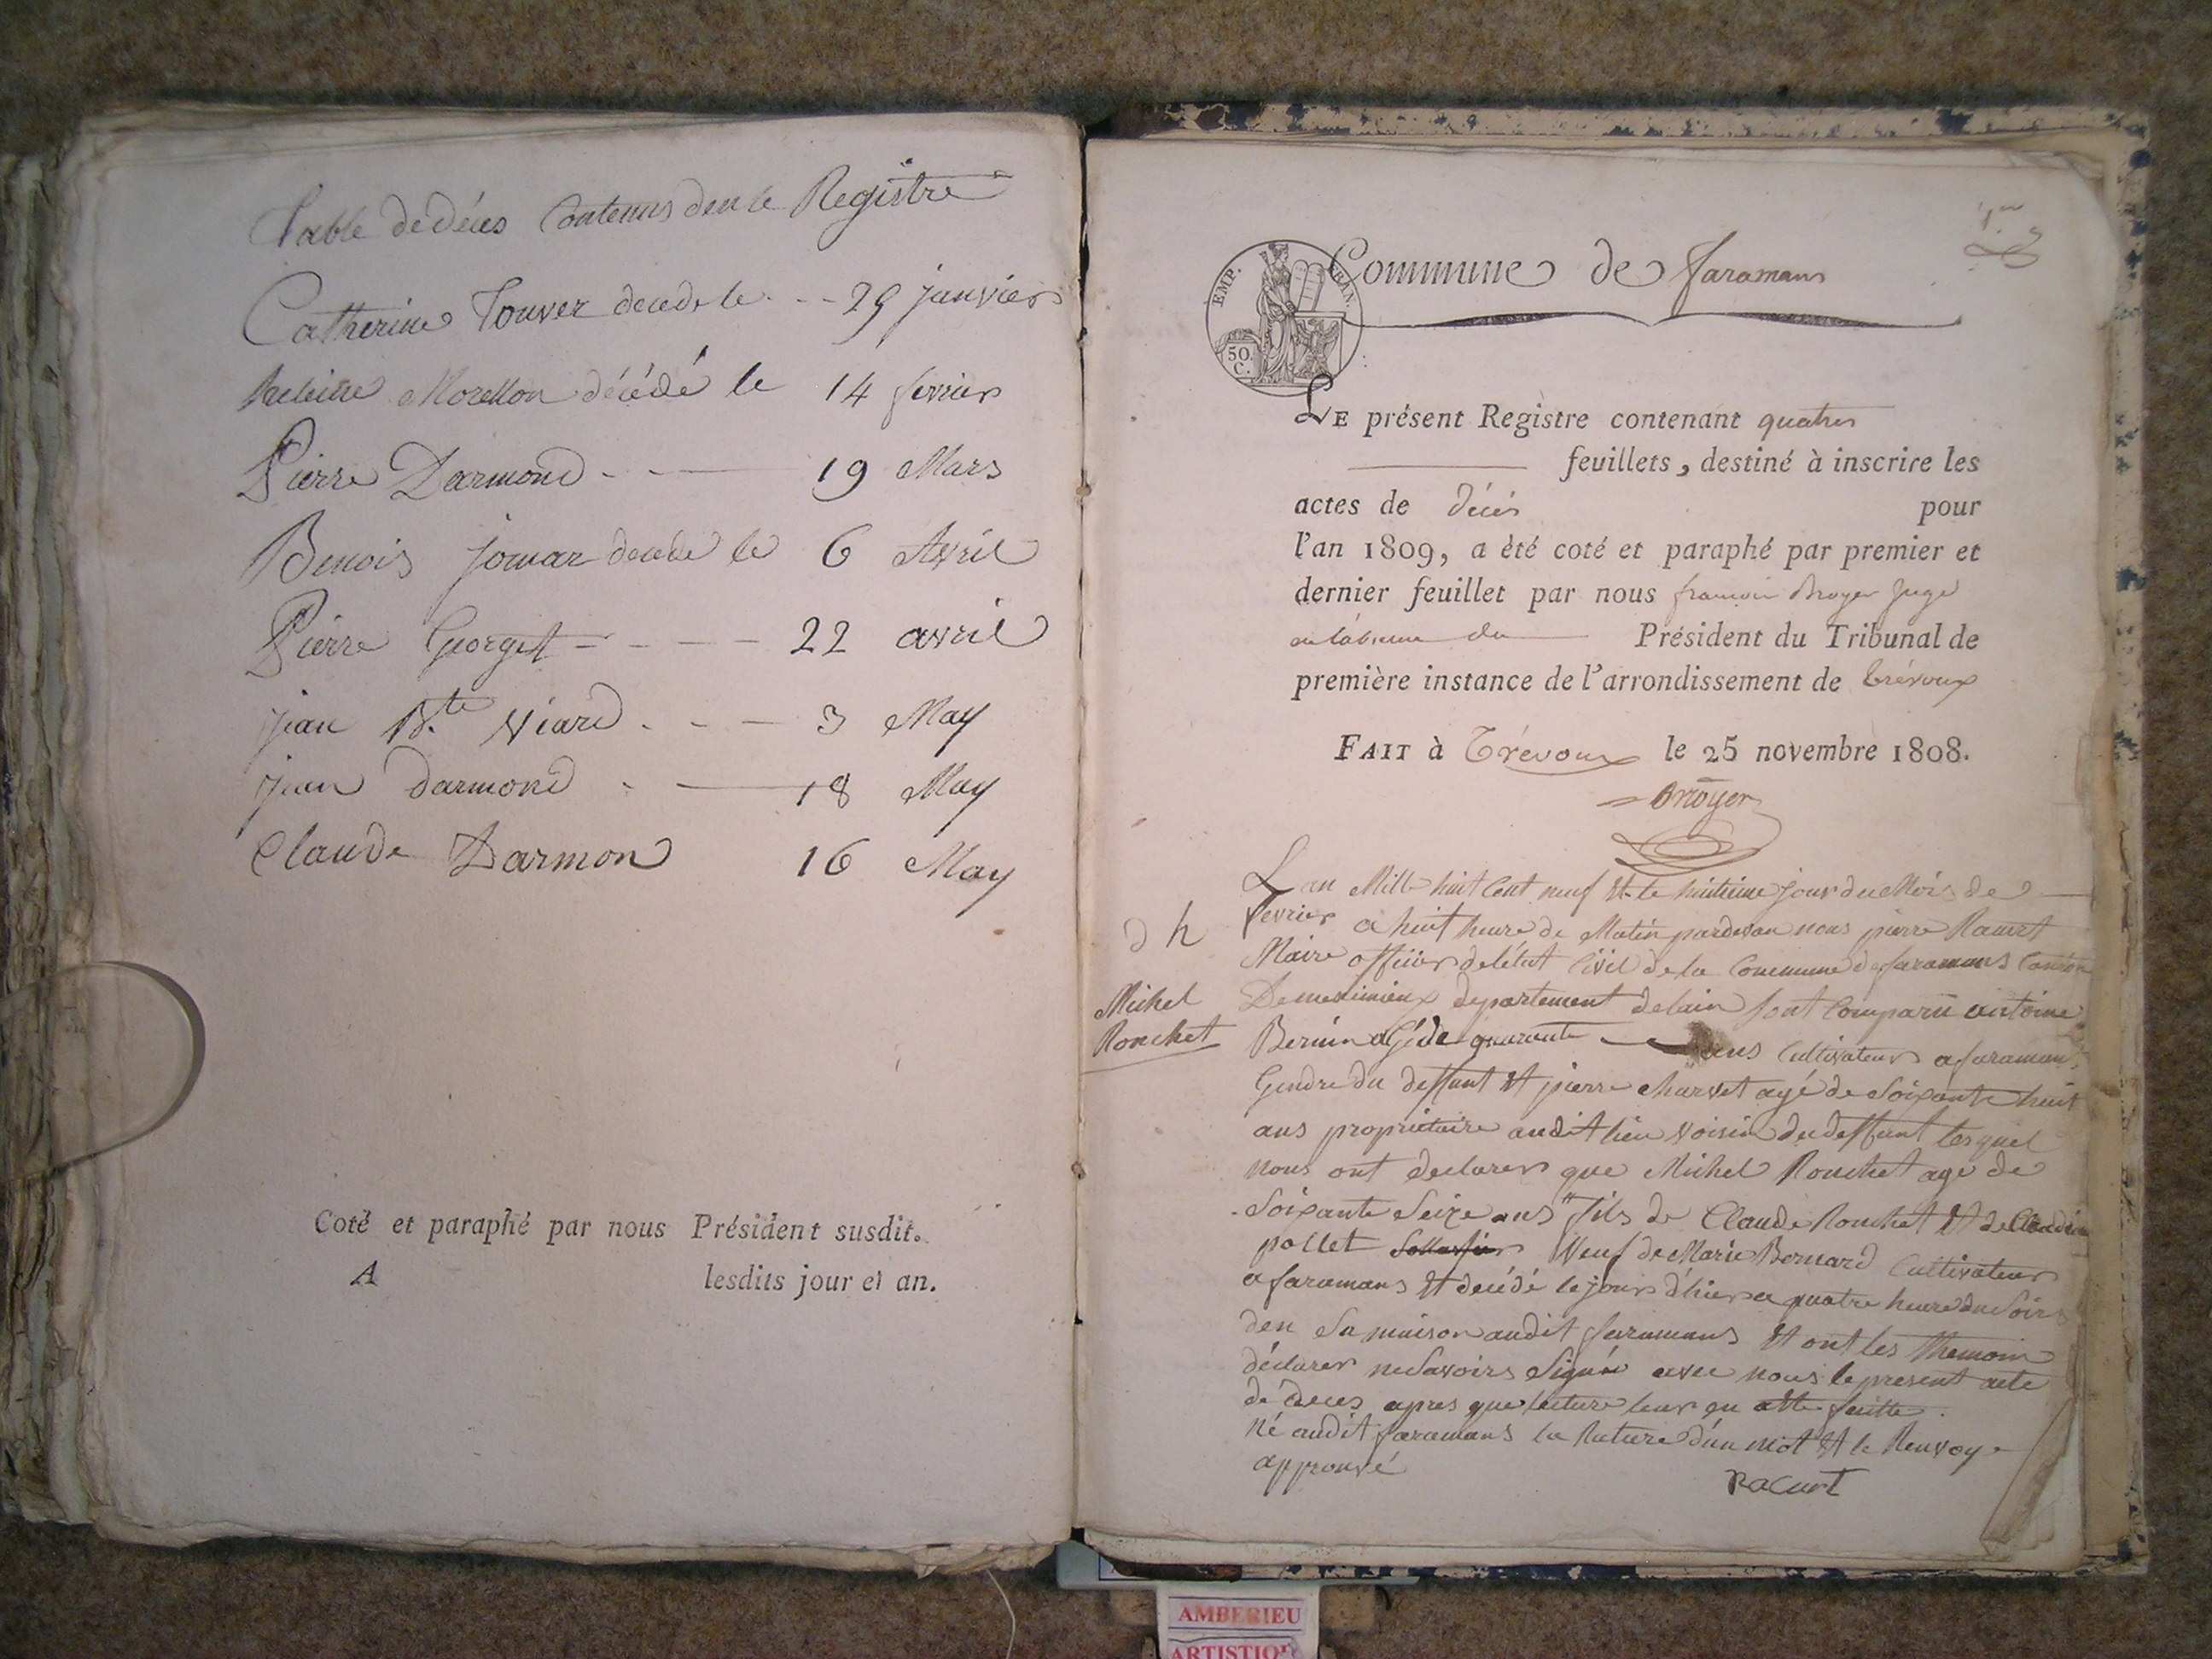 Table de déces Contenus den le Registre
Catherine Touver decede le 29 janvier
Morellon décédé le 14 fevrier
Pierre Darmond 19 Mars
Benois jomar decede le 6 Avril
Pierre Georget 22 avril
jean Bte Viard 3 May
jean darmond 18 May
Claude Darmon 16 May
Coté et paraphé par nous Président susdit.
A lesdits jour et an.
1er
Commune de faramans
EMP. FRAN.
50. C.
LE présent Registre contenant quatre
feuillets, destiné à inscrire les
actes de décés pour
l'an 1809, a été coté et paraphé par premier et
dernier feuillet par nous francois Broyer juge
Président du Tribunal de
première instance de l'arrondissement de trévoux
FAIT à Trévoux le 25 novembre 1808.
Broyer
d h
Michel
Ronchet
L an Mille huit Cent neuf Et le huitieme jour du Mois de
fevrier a huit heure de Matin pardevan nous pierre Racurt
Maire officier de létat Civil de la Commune de faramans Canton
De meximieux departement de lain sont Comparu antoine
Bernin agé de quarante ans Cultivateur a faraman
Gendre du deffunt Et pierre Charvet agé de Soixante huit
ans proprietaire audit lieu voisin du deffunt lesquel
nous ont declarer que Michel Ronchet age de
Soixante Seize ans fils de Claude Ronchet Et de Claudine
pollet Veuf de Marie Bernard Cultivateur
a faramans Et decédé le jours d'hier a quatre heure du Soir
den Sa maison audit faramans Et ont les themoin
déclarer ne Savoirs Signé avec nous le present acte
de déces apres que lecture leur en atte faitte.
Né audit faramans la Rature d'un mot Et le Renvoy
approuvé
Racurt
AMBERIEU
ARTISTIQ